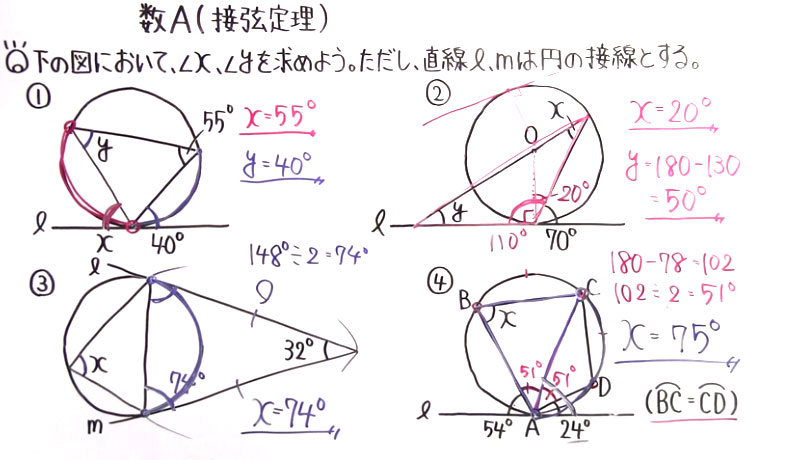 数A(接弦定理)
Q下の図において、∠x、∠yを求めよう。ただし、直線ℓ、mは円の接線とする。
①
55°
y
ℓ
x
40°
x=55°
y=40°
②
x
O
y
ℓ
20°
110°
70°
x=20°
y=180-130
=50°
③
ℓ
x
74°
m
32°
148°÷2=74°
x=74°
④
B
C
x
51°
51°
D
ℓ
54°
A
24°
180-78=102
102÷2=51°
x=75°
(BC=CD)